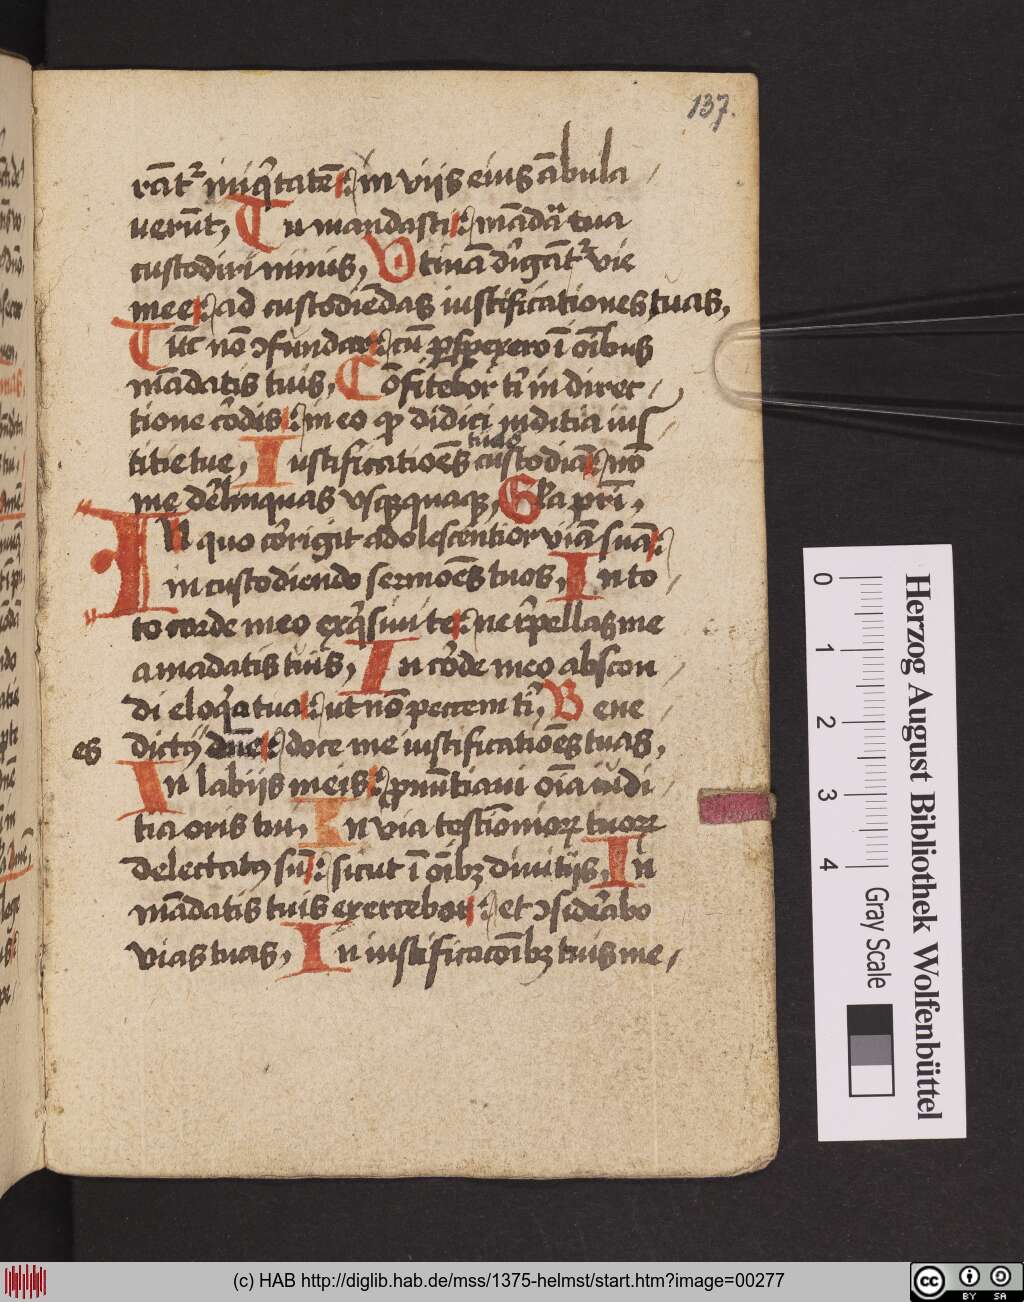 137.
rāt᷑ iniq̄tatē : in viis eius ābula
uerūt, Tu mandasti : mādā tua
custodiri nimis, Utinā dirigāt᷑ vie
mee : ad custodiēdas iustificationes tuas,
Tūc nō ꝯfundar : cū ꝑspexero ī oībus
mādatis tuis, Cōfitebor tⁱ in direc
tione cordis : in eo ꝙ didici iuditia ius
titie tue, Iustificatiōes tuas custodiā : nō
me derelinquas vsqꝫquaqꝫ, Gl̄a pr̄i,
In quo corrigit adolescentior viā suā :
in custodiendo sermōes tuos, In to
to corde meo exq̄siui te : ne repellas me
a mādatis tuis, In corde meo abscon
di eloq̄a tua : ut nō peccem tⁱ, Bene
es dictꝰ dn̄e : doce me iustificatiōes tuas,
In labiis meis : ꝓnūtiaui oīa iudi
tia oris tui, In via testimonioꝝ tuoꝝ
delectatꝰ sū : sicut ī oībꝫ diuitiis, In
mādatis tuis exercebor : et ꝯsiderabo
vias tuas, In iustificacōibꝫ tuis me
0 1 2 3 4
Herzog August Bibliothek Wolfenbüttel
Gray Scale
(c) HAB http://diglib.hab.de/mss/1375-helmst/start.htm?image=00277
cc BY SA